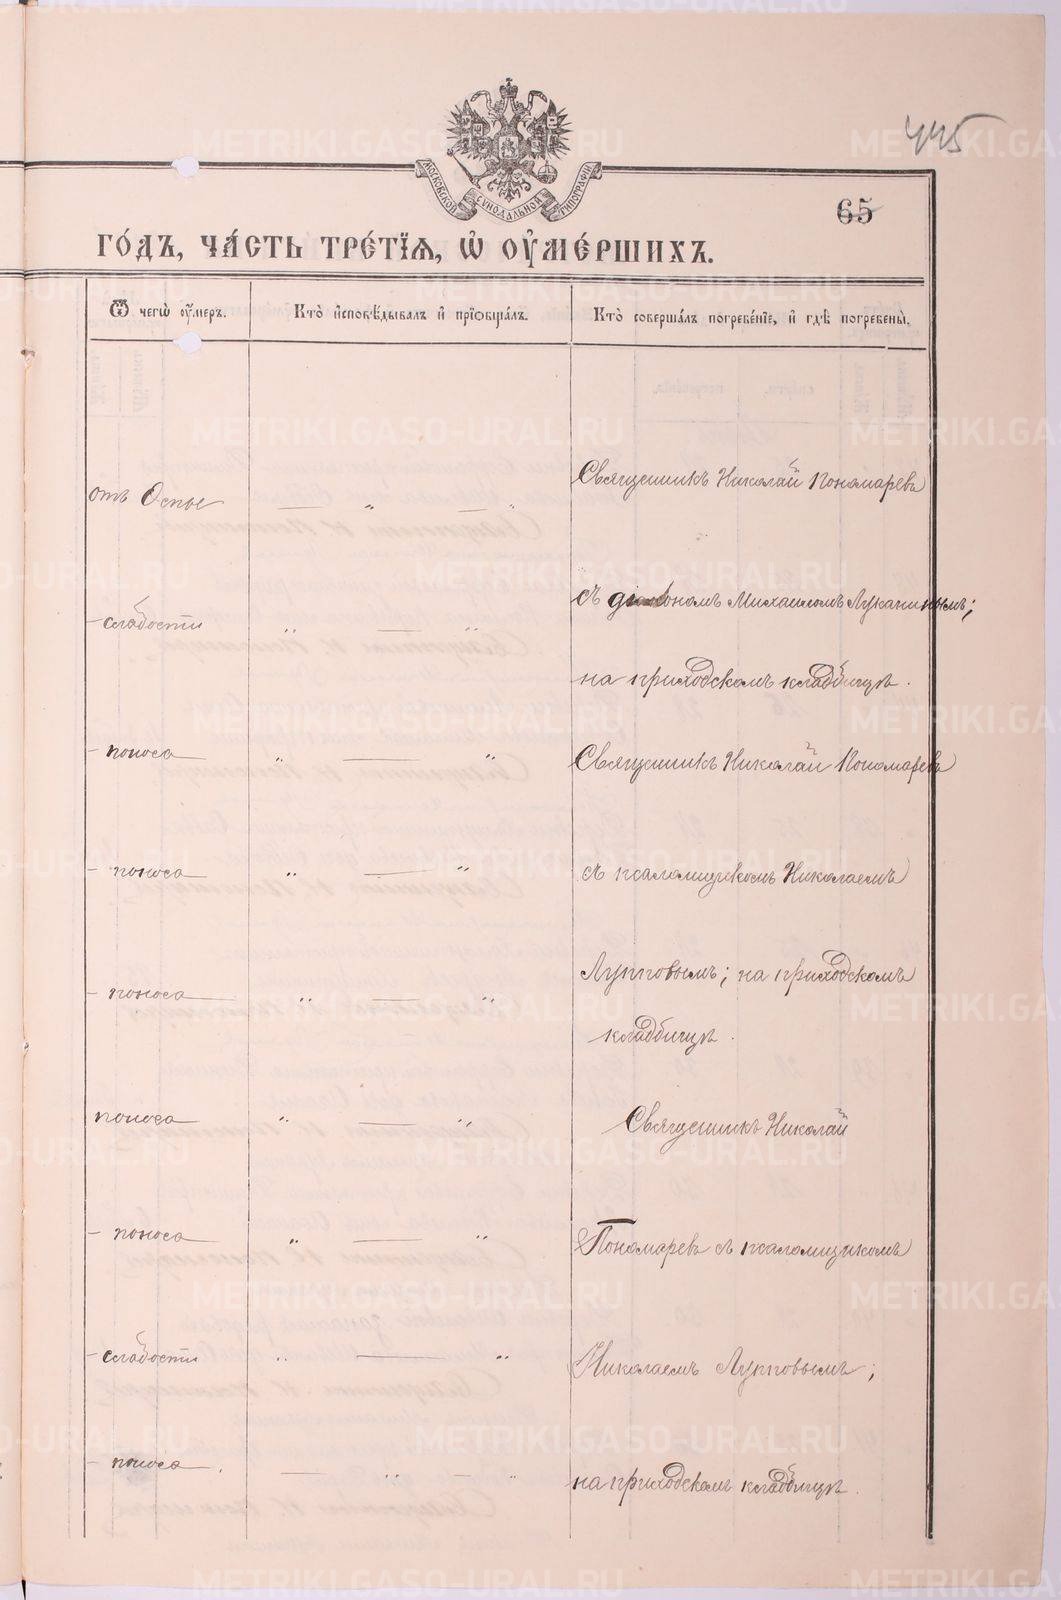 445
МОСКОВСКОЙ СѴНОДАЛЬНОЙ ТИПОГРАФІИ
65
ГО́ДЪ, ЧА́СТЬ ТРЕ́ТІѦ, Ѡ҆ ОУ҆МЕ́РШИХЪ.
Ѿ чегѡ̀ оу҆́меръ.
Кто̀ и҆сповѣ́дывалъ и҆ прїѡбща́лъ.
Кто̀ соверша́лъ погребе́нїе, и҆ гдѣ̀ погребены̀.
Священникъ Николай Пономаревъ
отъ Оспы — „ — „
съ діакономъ Михаиломъ Лукачинымъ;
- слабости „ — „
на приходскомъ кладбищѣ.
- поноса „ — „
Священникъ Николай Пономаревъ
- поноса „ — „
съ псаломщикомъ Николаемъ
Лупповымъ; на приходскомъ
- поноса „ — „
кладбищѣ.
поноса „ — „
Священникъ Николай
- поноса „ — „
Пономаревъ съ псаломщикомъ
- слабости „ — „
Николаемъ Лупповымъ;
- поноса. — „ — „
на приходскомъ кладбищѣ.
METRIKI.GASO-URAL.RU